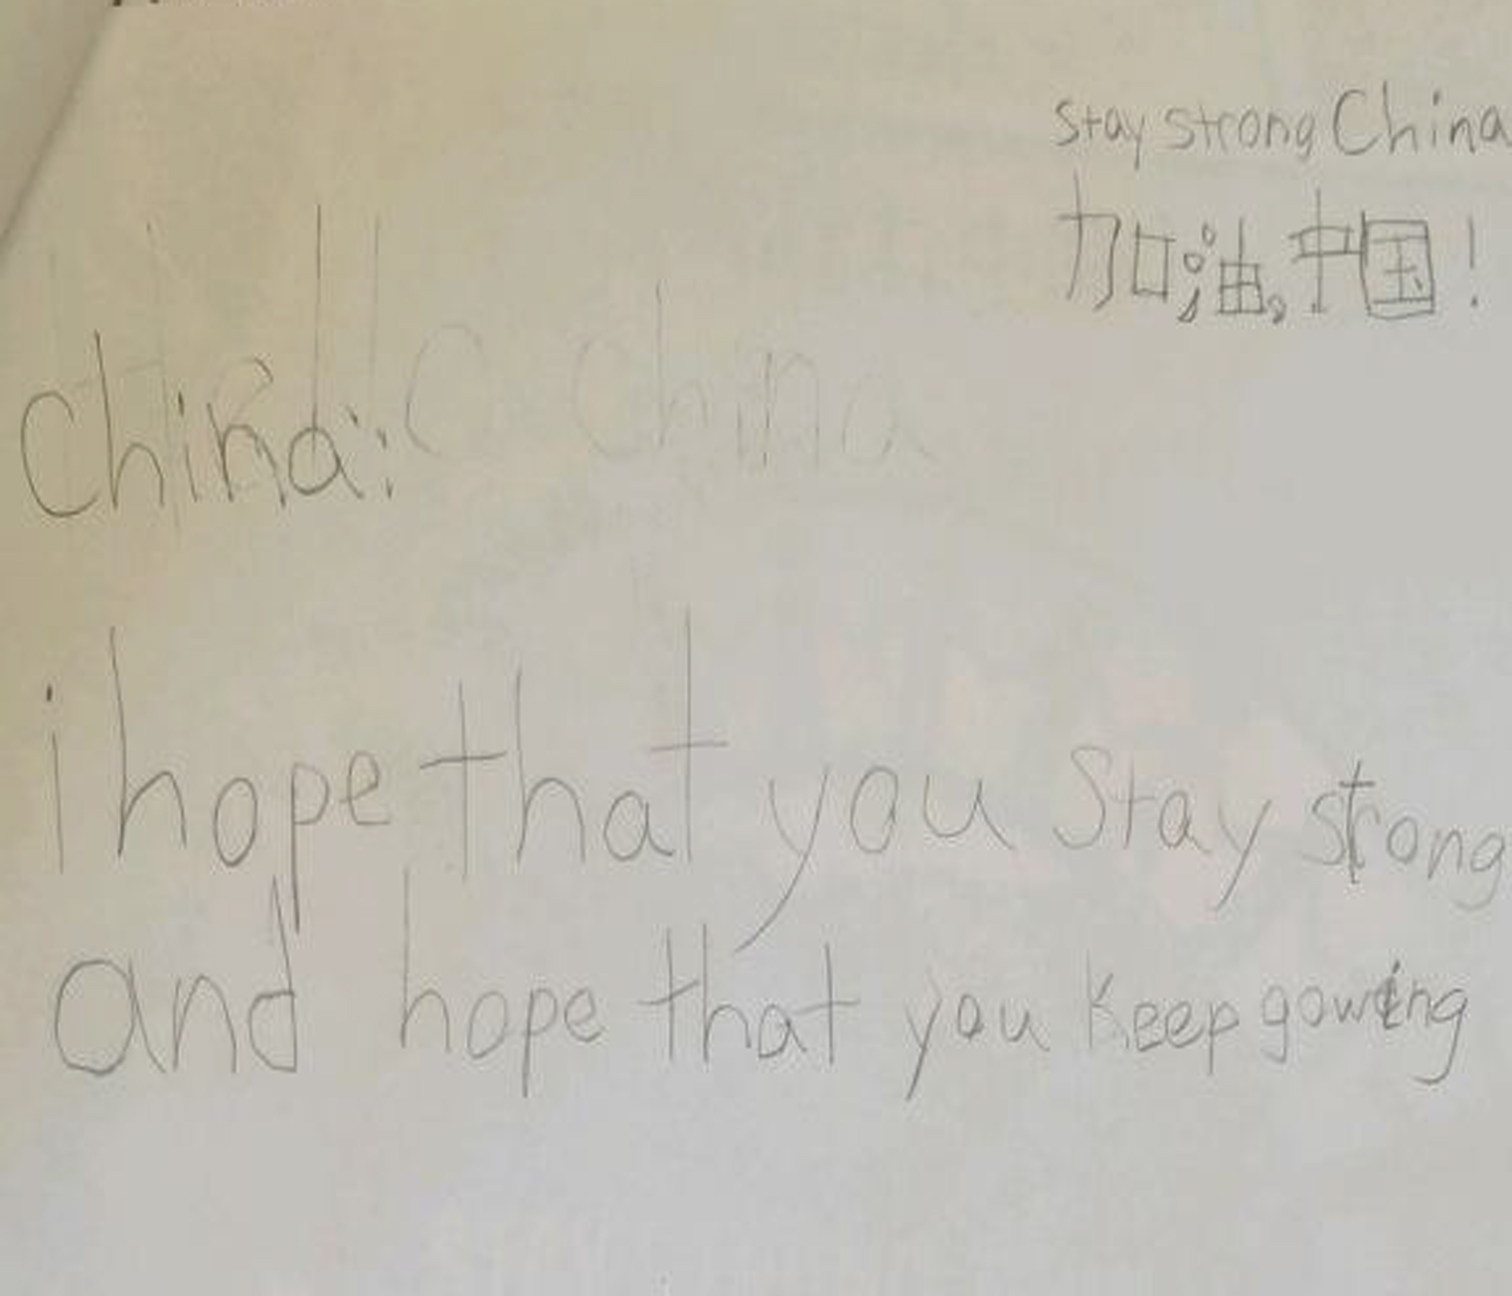 Stay strong China
加油,中国!
China:
China
i hope that you Stay strong
and hope that you Keep gowing